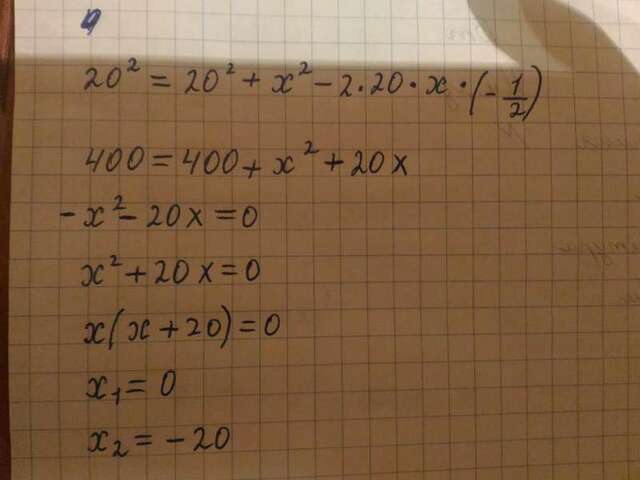 20² = 20² + x² - 2·20·x·(-1/2)
400 = 400 + x² + 20x
-x² - 20x = 0
x² + 20x = 0
x(x + 20) = 0
x₁ = 0
x₂ = -20